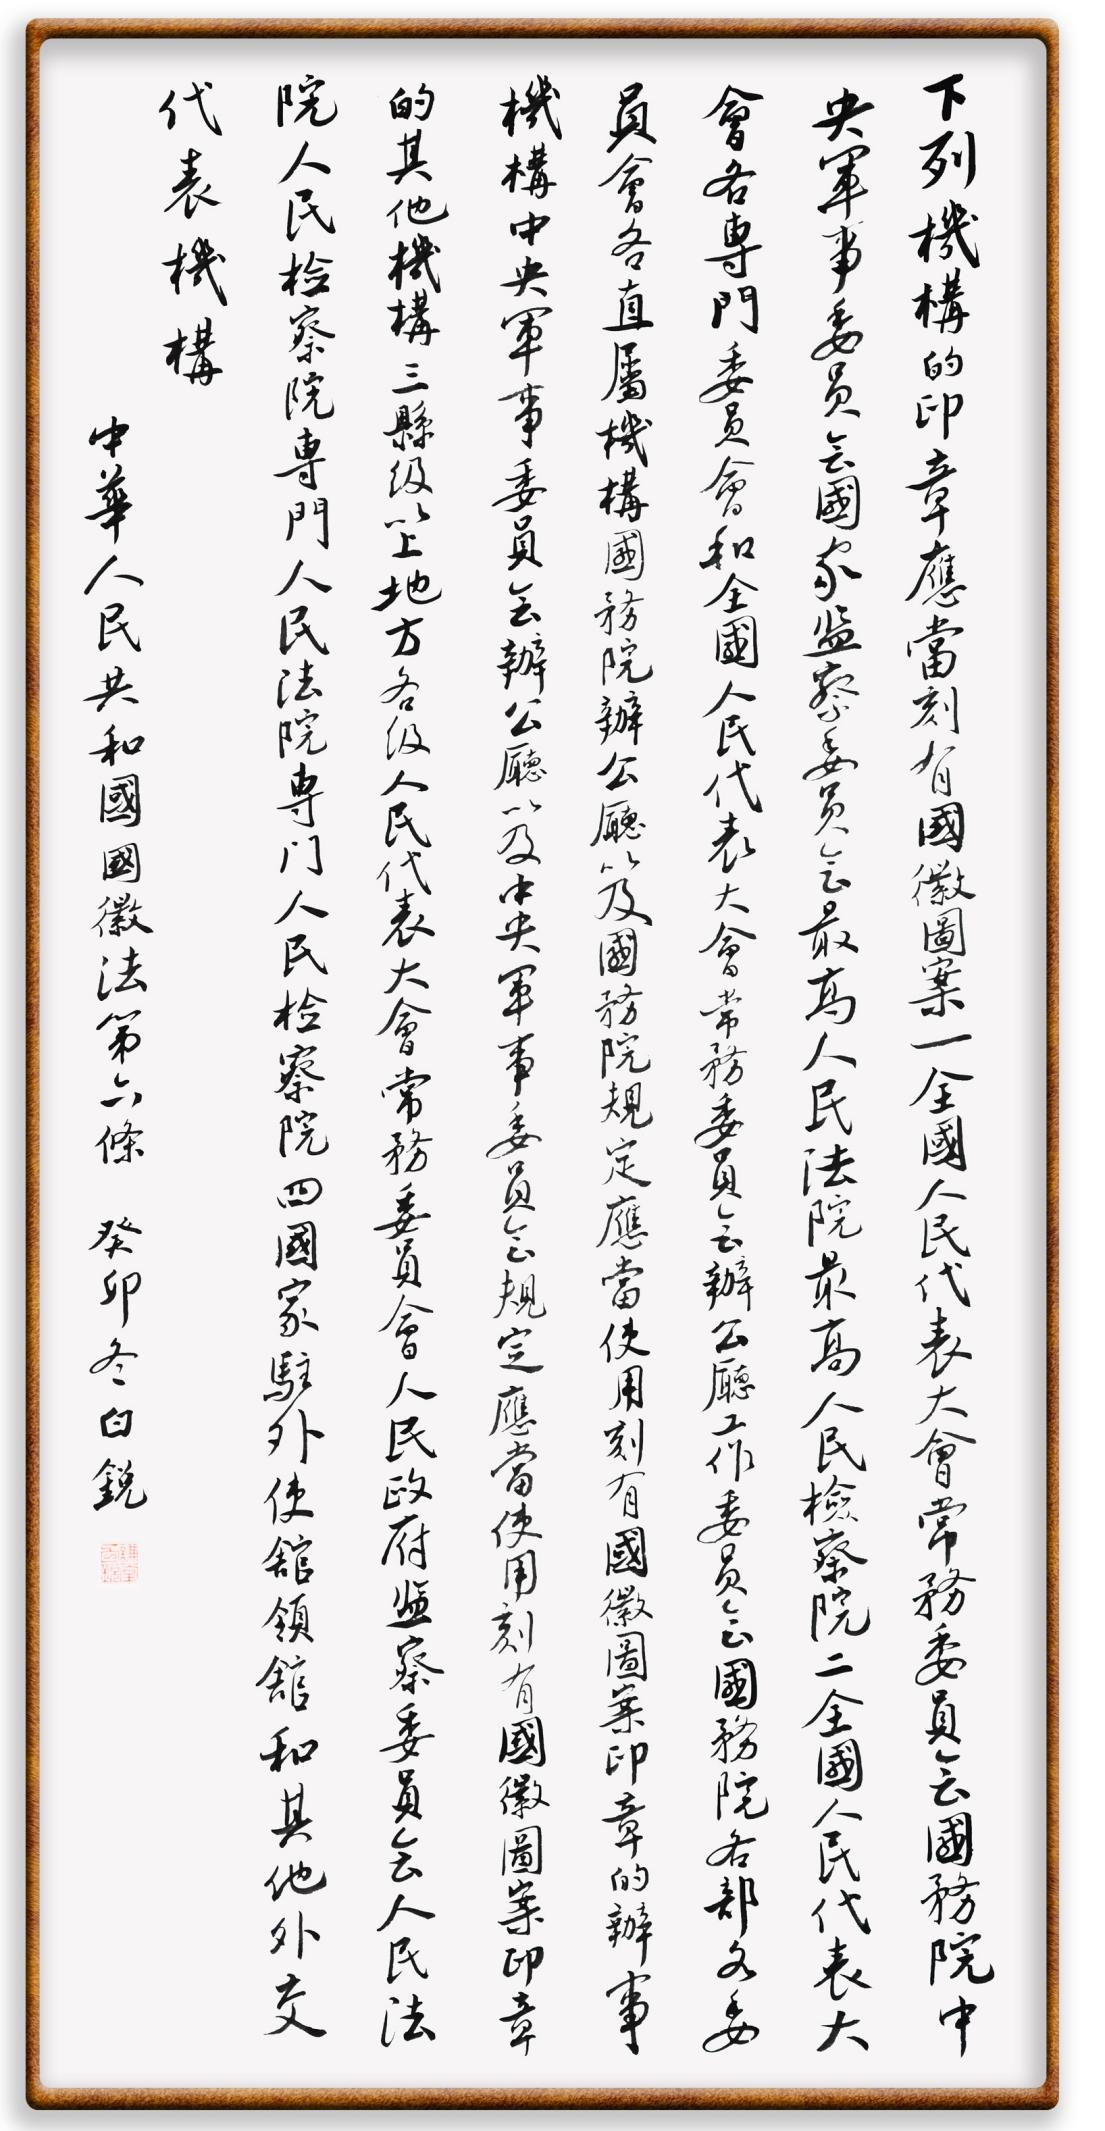 下列機構的印章應當刻有國徽圖案一全國人民代表大會常務委員会國務院中
央軍事委員会國家监察委員会最高人民法院最高人民檢察院二全國人民代表大
會各專門委員會和全國人民代表大會常務委員会辦公廳工作委員会國務院各部各委
員會各直屬機構國務院辦公廳以及國務院規定應當使用刻有國徽圖案印章的辦事
機構中央軍事委員会辦公廳以及中央軍事委員会規定應當使用刻有國徽圖案印章
的其他機構三縣级以上地方各级人民代表大會常務委員會人民政府监察委員会人民法
院人民检察院專門人民法院專门人民检察院四國家駐外使舘領舘和其他外交
代表機構
中華人民共和國國徽法第六條 癸卯冬白銳